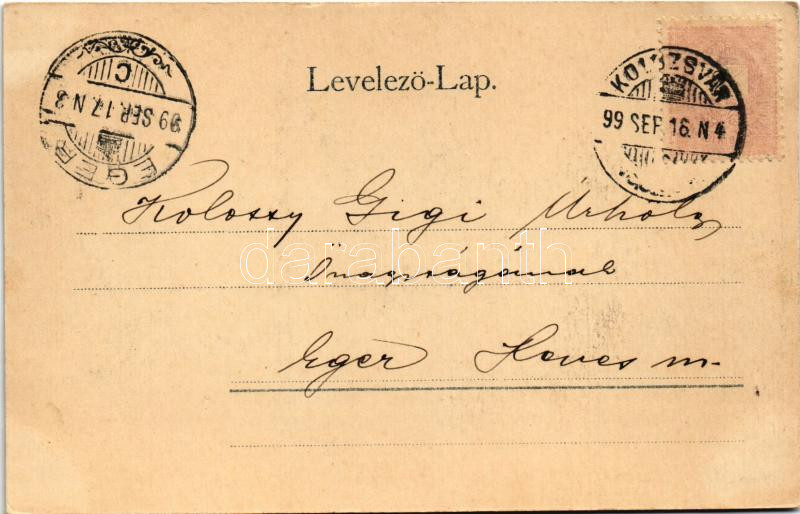 Levelező-Lap.
EGER
99 SEP. 17. N 3
C
KOLOZSVÁR
99 SEP. 16. N 4
Kolossy Gigi Úrhölgy
Önagyságának
Eger Heves m.
darabanth